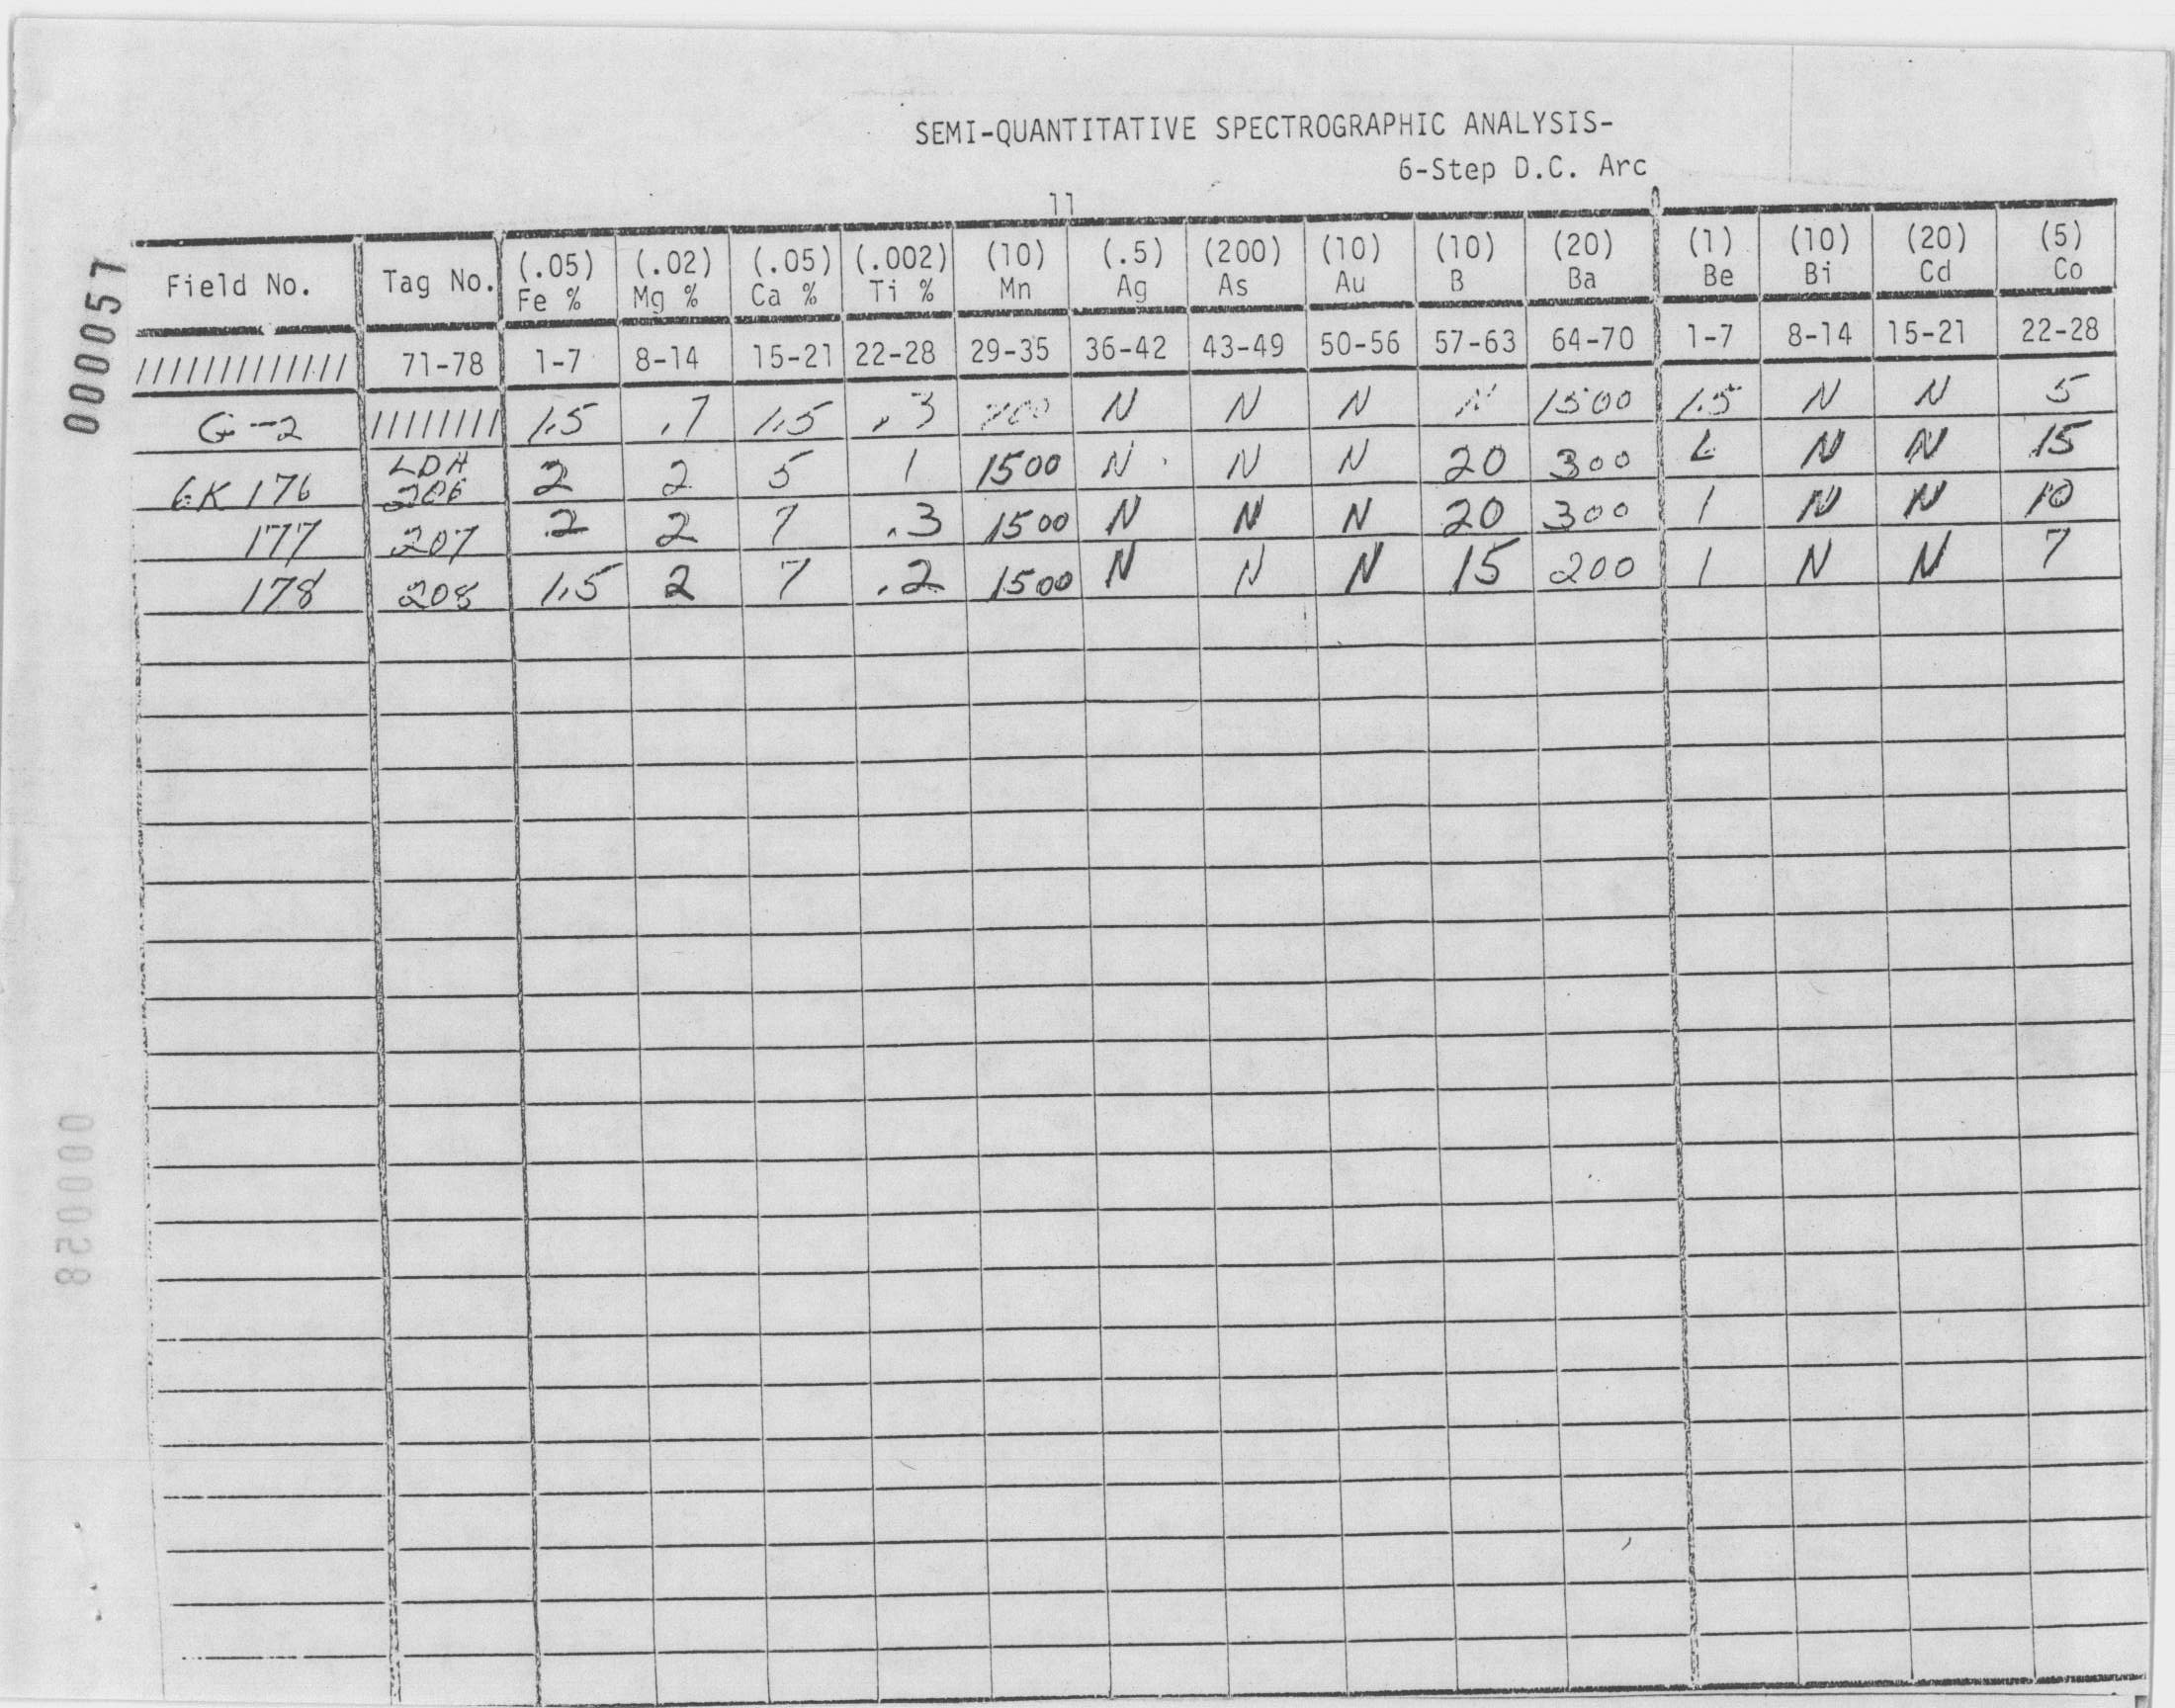 SEMI-QUANTITATIVE SPECTROGRAPHIC ANALYSIS-
6-Step D.C. Arc
11
000057
Field No. Tag No. (.05) Fe % (.02) Mg % (.05) Ca % (.002) Ti % (10) Mn (.5) Ag (200) As (10) Au (10) B (20) Ba (1) Be (10) Bi (20) Cd (5) Co
///////////// 71-78 1-7 8-14 15-21 22-28 29-35 36-42 43-49 50-56 57-63 64-70 1-7 8-14 15-21 22-28
G-2 //////// 1.5 .7 1.5 .3 N N N N 1500 1.5 N N 5
176 LDH 206 2 2 5 1 1500 N N N 20 300 L N N 15
177 207 2 2 7 .3 1500 N N N 20 300 1 N N 10
178 208 1.5 2 7 .2 1500 N N N 15 200 1 N N 7
000058